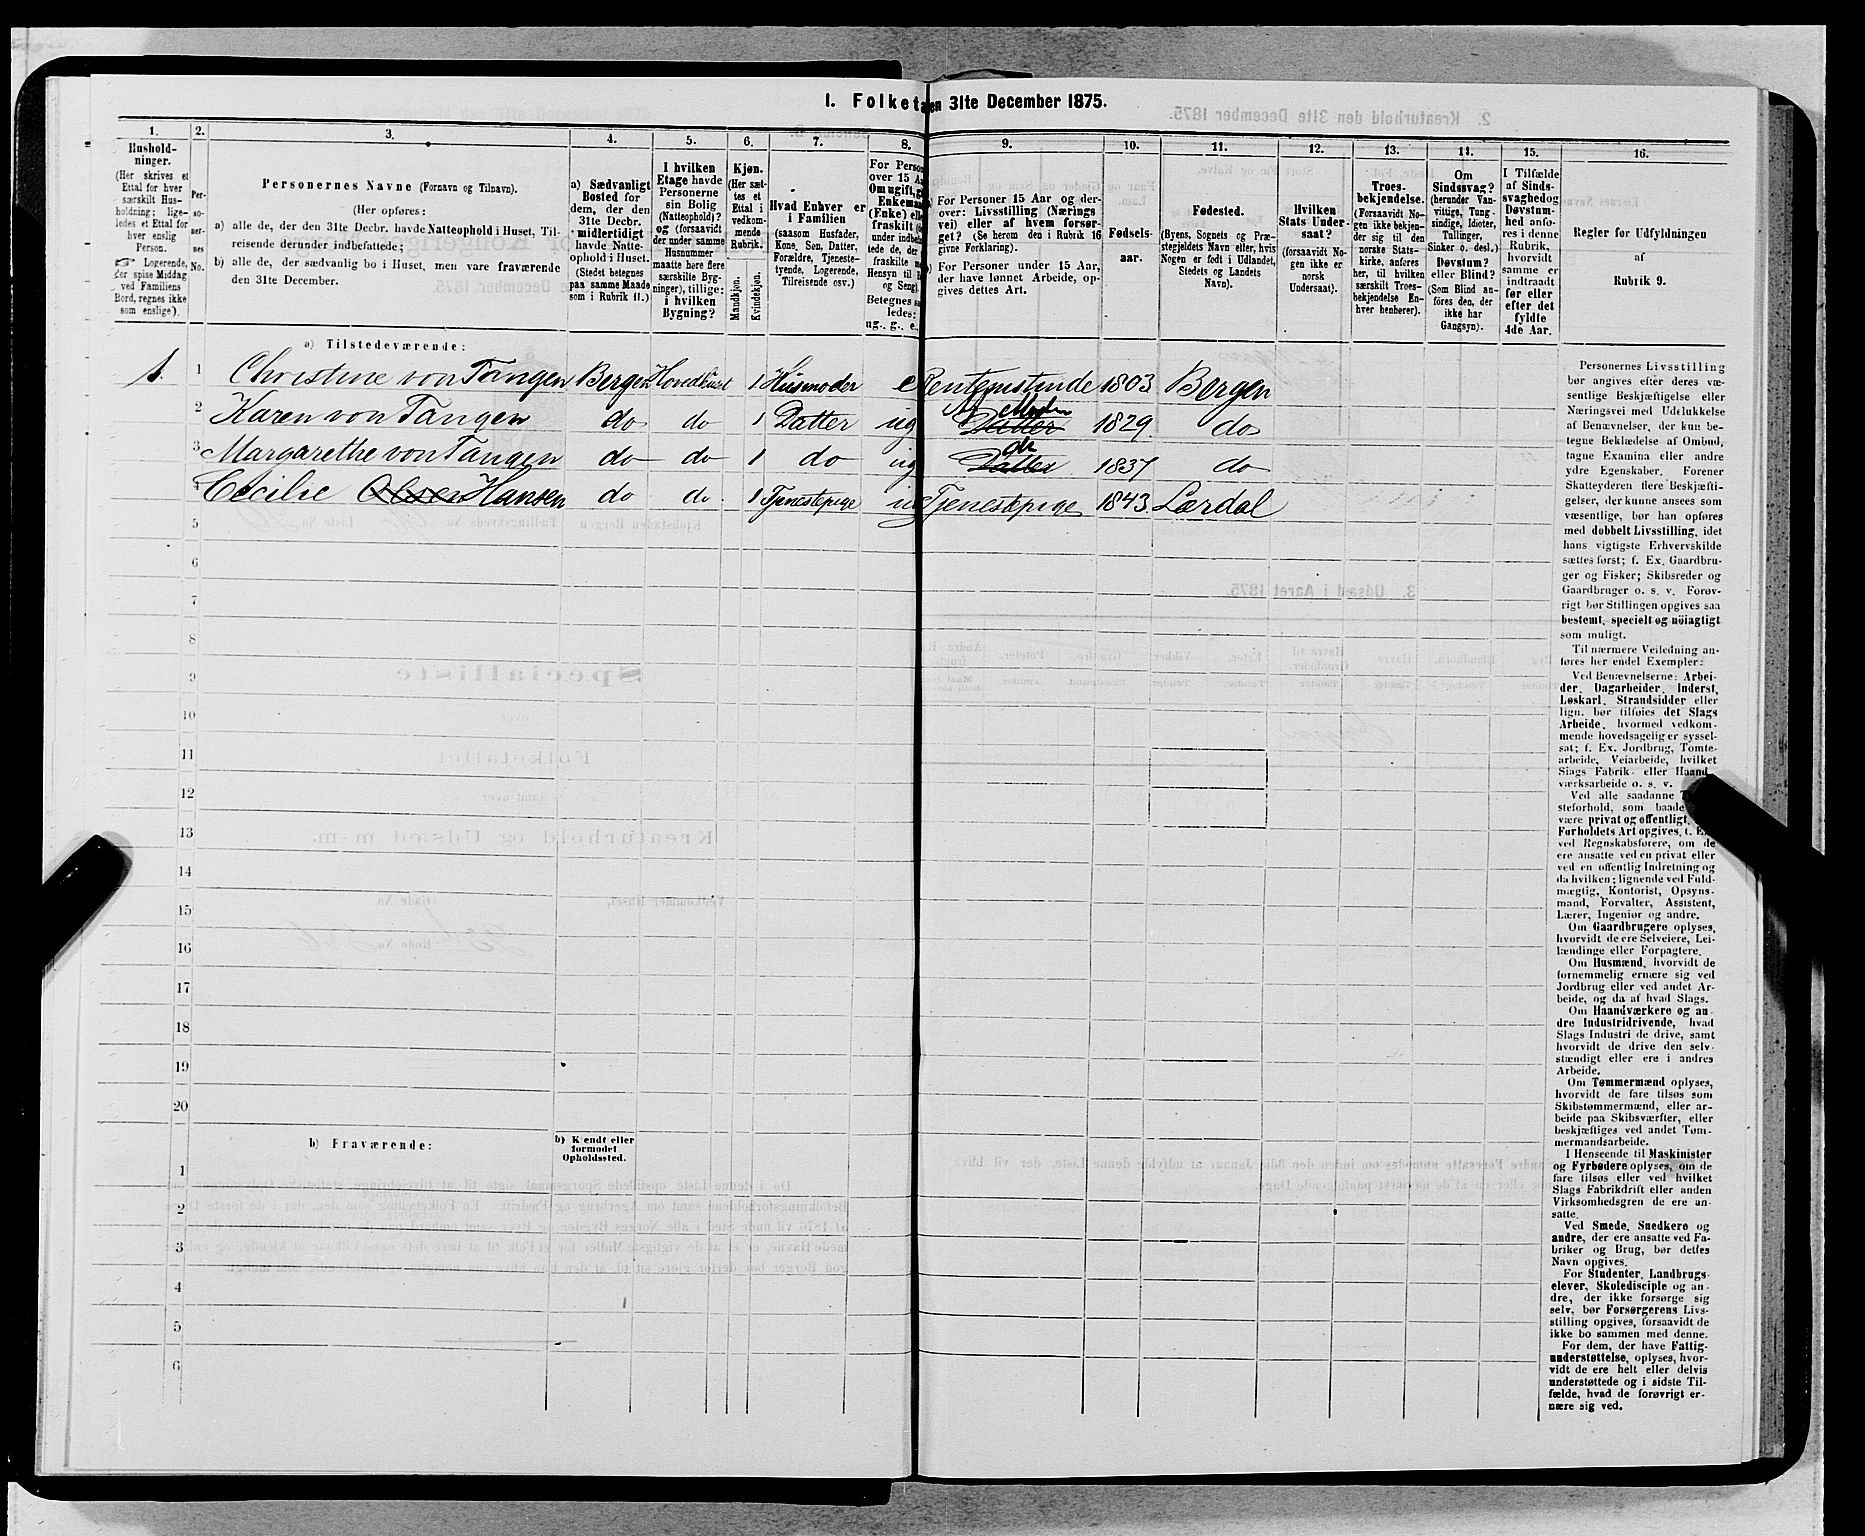 1. Folketal den 31te December 1875.
1. 2. 3. 4. 5. 6. 7. 8. 9. 10. 11. 12. 13. 14. 15. 16.
Hushold-
ninger.
(Her skrives et
Ettal for hver
særskilt Hus-
holdning; lige-
ledes et Ettal for
hver enslig
Person.
Logerende,
der spise Middag
ved Familiens
Bord, regnes ikke
som enslige).
Per-
so-
ner-
nes
No.
Personernes Navne (Fornavn og Tilnavn).
(Her opføres:
a) alle de, der den 31te Decbr. havde Natteophold i Huset, Til-
reisende derunder indbefattede;
b) alle de, der sædvanlig bo i Huset, men vare fraværende
den 31te December.
a) Sædvanligt
Bosted for
dem, der den
31te Decbr.
midlertidigt
havde Natte-
ophold i Huset.
(Stedet betegnes
paa samme Maade
som i Rubrik 11.)
I hvilken
Etage havde
Personerne
sin Bolig
(Natteophold)?
og (forsaavidt
der under samme
Husnummer
maatte høre flere
særskilte Byg-
ninger), tillige:
i hvilken
Bygning?
Kjøn.
(Her sæt-
tes et
Ettal i
vedkom-
mende
Rubrik.
Mandkjøn.
Kvindekjøn.
Hvad Enhver er
i Familien
(saasom Husfader,
Kone, Søn, Datter,
Forældre, Tjeneste-
tyende, Logerende,
Tilreisende osv.)
For Perso
over 15 Aa
Om ugift, g
Enkema
(Enke) ell
fraskilt (
under indbe
tede de, der
fraskilte m
Hensyn til B
og Seng).
Betegnes sa
ledes:
ug., g., e.,
For Personer 15 Aar og der-
over: Livsstilling (Nærings
vei) eller af hvem forsør-
get? (Se herom den i Rubrik 16
givne Forklaring).
For Personer under 15 Aar,
der have lønnet Arbeide, op-
gives dettes Art.
Fødsels-
aar.
Fødested.
(Byens, Sognets og Præ-
stegjeldets Navn eller, hvis
Nogen er født i Udlandet,
Stedets og Landets
Navn).
Hvilken
Stats Under-
saat?
(forsaavidt No-
gen ikke er
norsk
Undersaat).
Troes-
bekjendelse.
(Forsaavidt No-
gen ikke bekjen-
der sig til den
norske Stats-
kirke, anføres
her, til hvilken
særskilt Troes-
bekjendelse En-
hver henhører).
Om
Sindssvag?
(herunder Van-
vittige, Tung-
sindige, Idioter,
Tullinger,
Sinker o. desl.)
Døvstum?
eller Blind?
(Som Blind an-
føres den, der
ikke har
Gangsyn).
I Tilfælde
af Sinds-
svaghed og
Døvstum-
hed anfø-
res i denne
Rubrik,
hvorvidt
samme er
indtraadt
før eller
efter det
fyldte
4de Aar.
Regler for Udfyldningen
af
Rubrik 9.
a) Tilstedeværende:
1. 1 Christine von Tangen Bergen Hovedhuset 1 Husmoder e Rentenistinde 1803 Bergen
2 Karen von Tangen do do 1 Datter ug Datter Af Moder 1829 do
3 Margarethe von Tangen do do 1 do ug Datter do 1837 do
4 Cecilie Olsen Hansen do do 1 Tjenestepige ug Tjenestepige 1843 Lærdal
5
6
7
8
9
10
11
12
13
14
15
16
17
18
19
20
b) Fraværende:
b) Kjendt eller
formodet
Opholdssted.
1
2
3
4
5
6
Personernes Livsstilling
bør angives efter deres væ-
sentlige Beskjæftigelse eller
Næringsvei med Udelukkelse
af Benævnelser, der kun be-
tegne Beklædelse af Ombud,
tagne Examina eller andre
ydre Egenskaber. Forener
Skatteyderen flere Beskjæfti-
gelser, der kunne ansees som
væsentlige, bør han opføres
med dobbelt Livsstilling, idet
hans vigtigste Erhvervskilde
sættes først; f. Ex. Gaardbru-
ger og Fisker; Skibsreder og
Gaardbruger o. s. v. Forøv-
rigt bør Stillingen opgives saa
bestemt, specielt og nøiagtigt
som muligt.
Til nærmere Veiledning an-
føres her endel Exempler:
Ved Benævnelserne: Arbei-
der, Dagarbeider, Inderst,
Løskarl, Strandsidder eller
lign. bør tilføies det Slags
Arbeide, hvormed vedkom-
mende hovedsagelig er syssel-
sat; f. Ex. Jordbrug, Tomte-
arbeide, Veiarbeide, hvilket
Slags Fabrik- eller Haand-
værksarbeide o. s. v.
Ved alle saadanne
steforhold, som baade
være privat og offentligt,
Forholdets Art opgives, t. Ex.
ved Regnskabsførere, om de
ere ansatte ved en privat eller
ved en offentlig Indretning og
da hvilken; lignende ved Fuld-
mægtig, Kontorist, Opsyns-
mand, Forvalter, Assistent,
Lærer, Ingeniør og andre.
Om Gaardbrugere oplyses,
hvorvidt de ere Selveiere, Lei-
lændinge eller Forpagtere.
Om Husmænd, hvorvidt de
fornemmelig ernære sig ved
Jordbrug eller ved andet Ar-
beide, og da af hvad Slags.
Om Haandværkere og an-
dre Industridrivende, hvad
Slags Industri de drive, samt
hvorvidt de drive den selv-
stændigt eller ere i andres
Arbeide.
Om Tømmermænd oplyses,
hvorvidt de fare tilsøs som
Skibstømmermænd, eller ar-
beide paa Skibsværfter, eller
beskjæftiges ved andet Tøm-
mermandsarbeide.
I Henseende til Maskinister
og Fyrbødere oplyses, om de
fare tilsøs eller ved hvilket
Slags Fabrikdrift eller anden
Virksomhedsgren de ere an-
satte.
Ved Smede, Snedkere og
andre, der ere ansatte ved Fa-
briker og Brug, bør dettes
Navn opgives.
For Studenter, Landbrugs-
elever, Skoledisciple og an-
dre, der ikke forsørge sig
selv, bør Forsørgerens Livs-
stilling opgives, forsaavidt de
ikke bo sammen med denne.
For dem, der have Fattig-
understøttelse, oplyses, hvor-
vidt de ere helt eller delvis
understøttede og i sidste Til-
fælde, hvad de forøvrigt er-
nære sig ved.